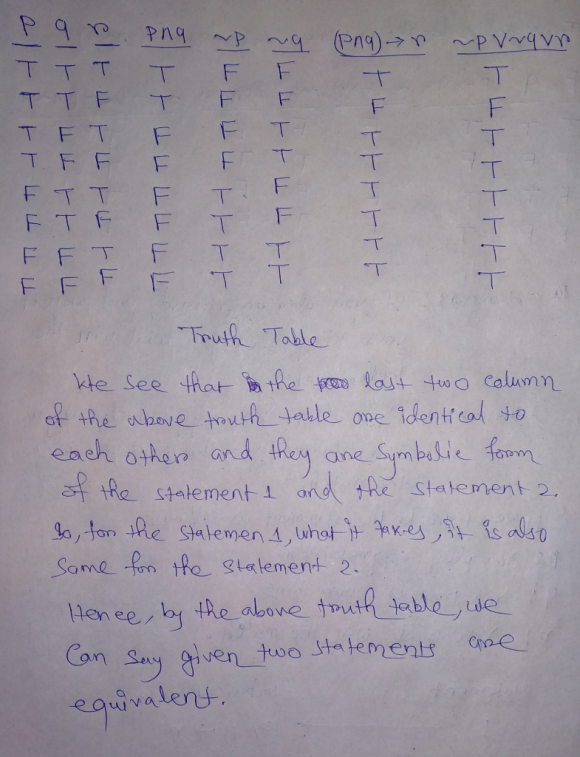 P q r p∧q ~p ~q (p∧q)→r ~p∨~q∨r
T T T T F F T T
T T F T F F F F
T F T F F T T T
T F F F F T T T
F T T F T F T T
F T F F T F T T
F F T F T T T T
F F F F T T T T
Truth Table
We see that the last two column
of the above truth table are identical to
each other and they are symbolic form
of the statement 1 and the statement 2.
So, for the statemen 1, what it takes, it is also
same for the statement 2.
Hence, by the above truth table, we
Can say given two statements are
equivalent.